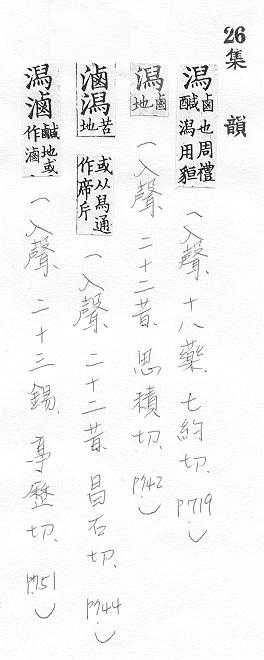 26 集韻
潟 鹵也周禮醎潟用貆 (入聲 十八藥 七約切. p719)
潟 鹵地 (入聲 二十二昔 思積切. p742)
滷潟 苦地 或从舄通作席斥 (入聲 二十二昔 昌石切. p744)
潟滷 鹹地或作滷 (入聲 二十三錫. 亭歷切. p751)